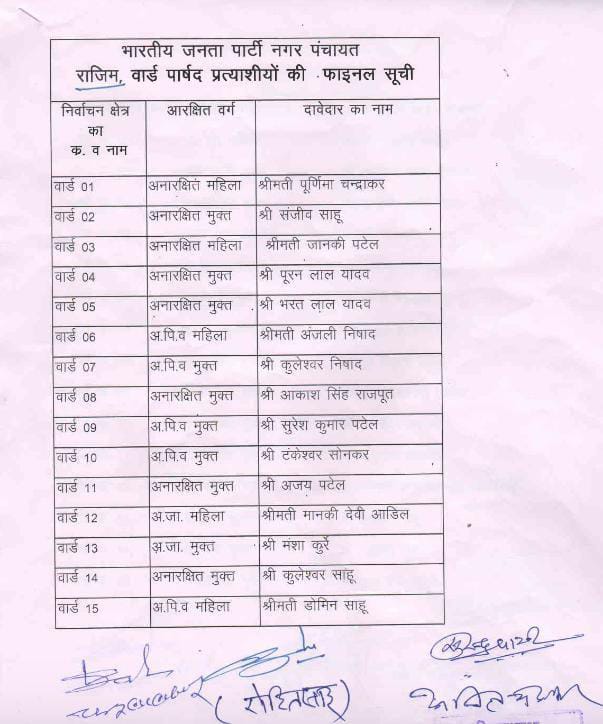 भारतीय जनता पार्टी नगर पंचायत
राजिम, वार्ड पार्षद प्रत्याशीयों की फाइनल सूची
निर्वाचन क्षेत्र का क. व नाम आरक्षित वर्ग दावेदार का नाम
वार्ड 01 अनारक्षित महिला श्रीमती पूर्णिमा चन्द्राकर
वार्ड 02 अनारक्षित मुक्त श्री संजीव साहू
वार्ड 03 अनारक्षित महिला श्रीमती जानकी पटेल
वार्ड 04 अनारक्षित मुक्त श्री पूरन लाल यादव
वार्ड 05 अनारक्षित मुक्त श्री भरत लाल यादव
वार्ड 06 अ.पि.व महिला श्रीमती अंजली निषाद
वार्ड 07 अ.पि.व मुक्त श्री कुलेश्वर निषाद
वार्ड 08 अनारक्षित मुक्त श्री आकाश सिंह राजपूत
वार्ड 09 अ.पि.व मुक्त श्री सुरेश कुमार पटेल
वार्ड 10 अ.पि.व मुक्त श्री टंकेश्वर सोनकर
वार्ड 11 अनारक्षित मुक्त श्री अजय पटेल
वार्ड 12 अ.जा. महिला श्रीमती मानकी देवी आडिल
वार्ड 13 अ.जा. मुक्त श्री मंशा कुर्रे
वार्ड 14 अनारक्षित मुक्त श्री कुलेश्वर साहू
वार्ड 15 अ.पि.व महिला श्रीमती डोमिन साहू
(रोहित साहू)